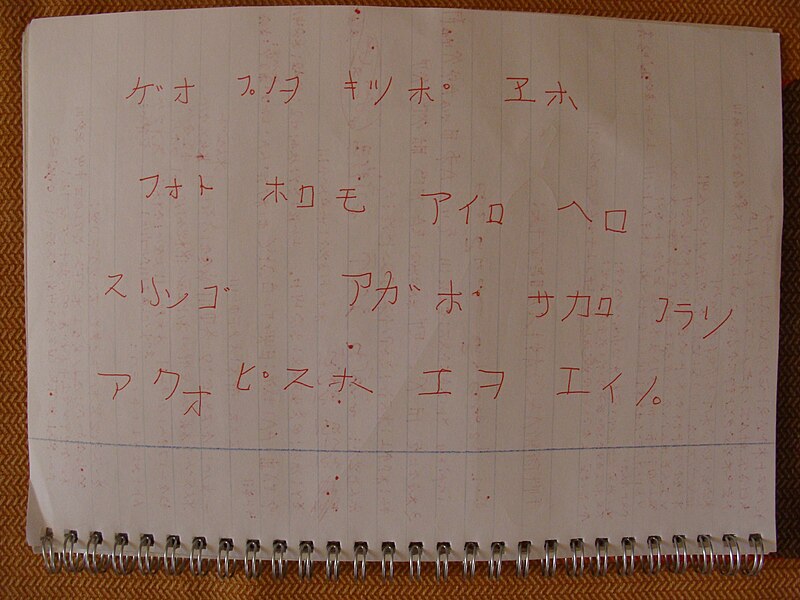 ゲオ プノヲ キツポ ヱホ
フォト ホロモ アイロ ヘロ
スリンゴ アガボ サカロ フラソ
アクォ ピスホ エヲ エイノ。